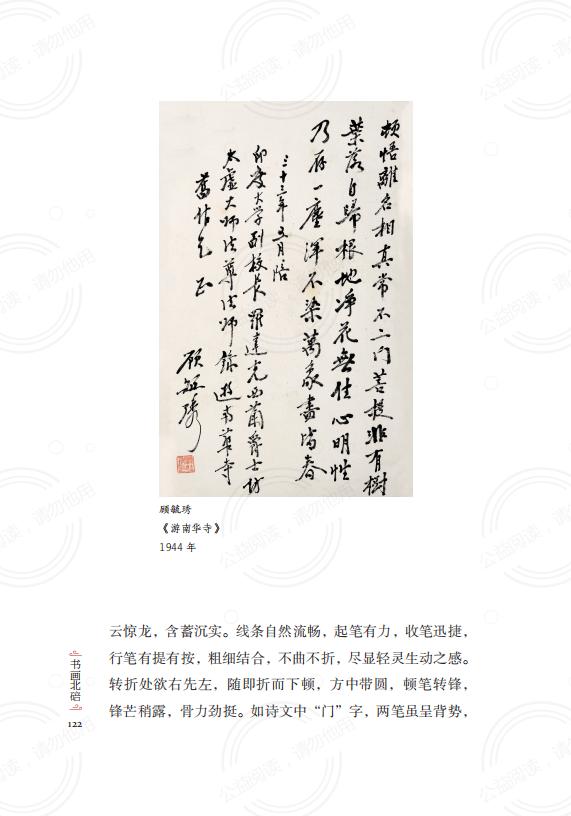 頓悟離名相真常不二門菩提非有樹
葉落自歸根地淨花無住心明性
乃存一塵渾不染萬象盡皆春
三十三年五月陪
印度大学副校長羅達克西蘭爵士访
太虛大師法尊法師錄遊南華寺
舊作乞正
顧毓琇
顾毓琇
《游南华寺》
1944 年
云惊龙，含蓄沉实。线条自然流畅，起笔有力，收笔迅捷，
行笔有提有按，粗细结合，不曲不折，尽显轻灵生动之感。
转折处欲右先左，随即折而下顿，方中带圆，顿笔转锋，
锋芒稍露，骨力劲挺。如诗文中“门”字，两笔虽呈背势，
书画北碚
122
公益阅读，请勿他用